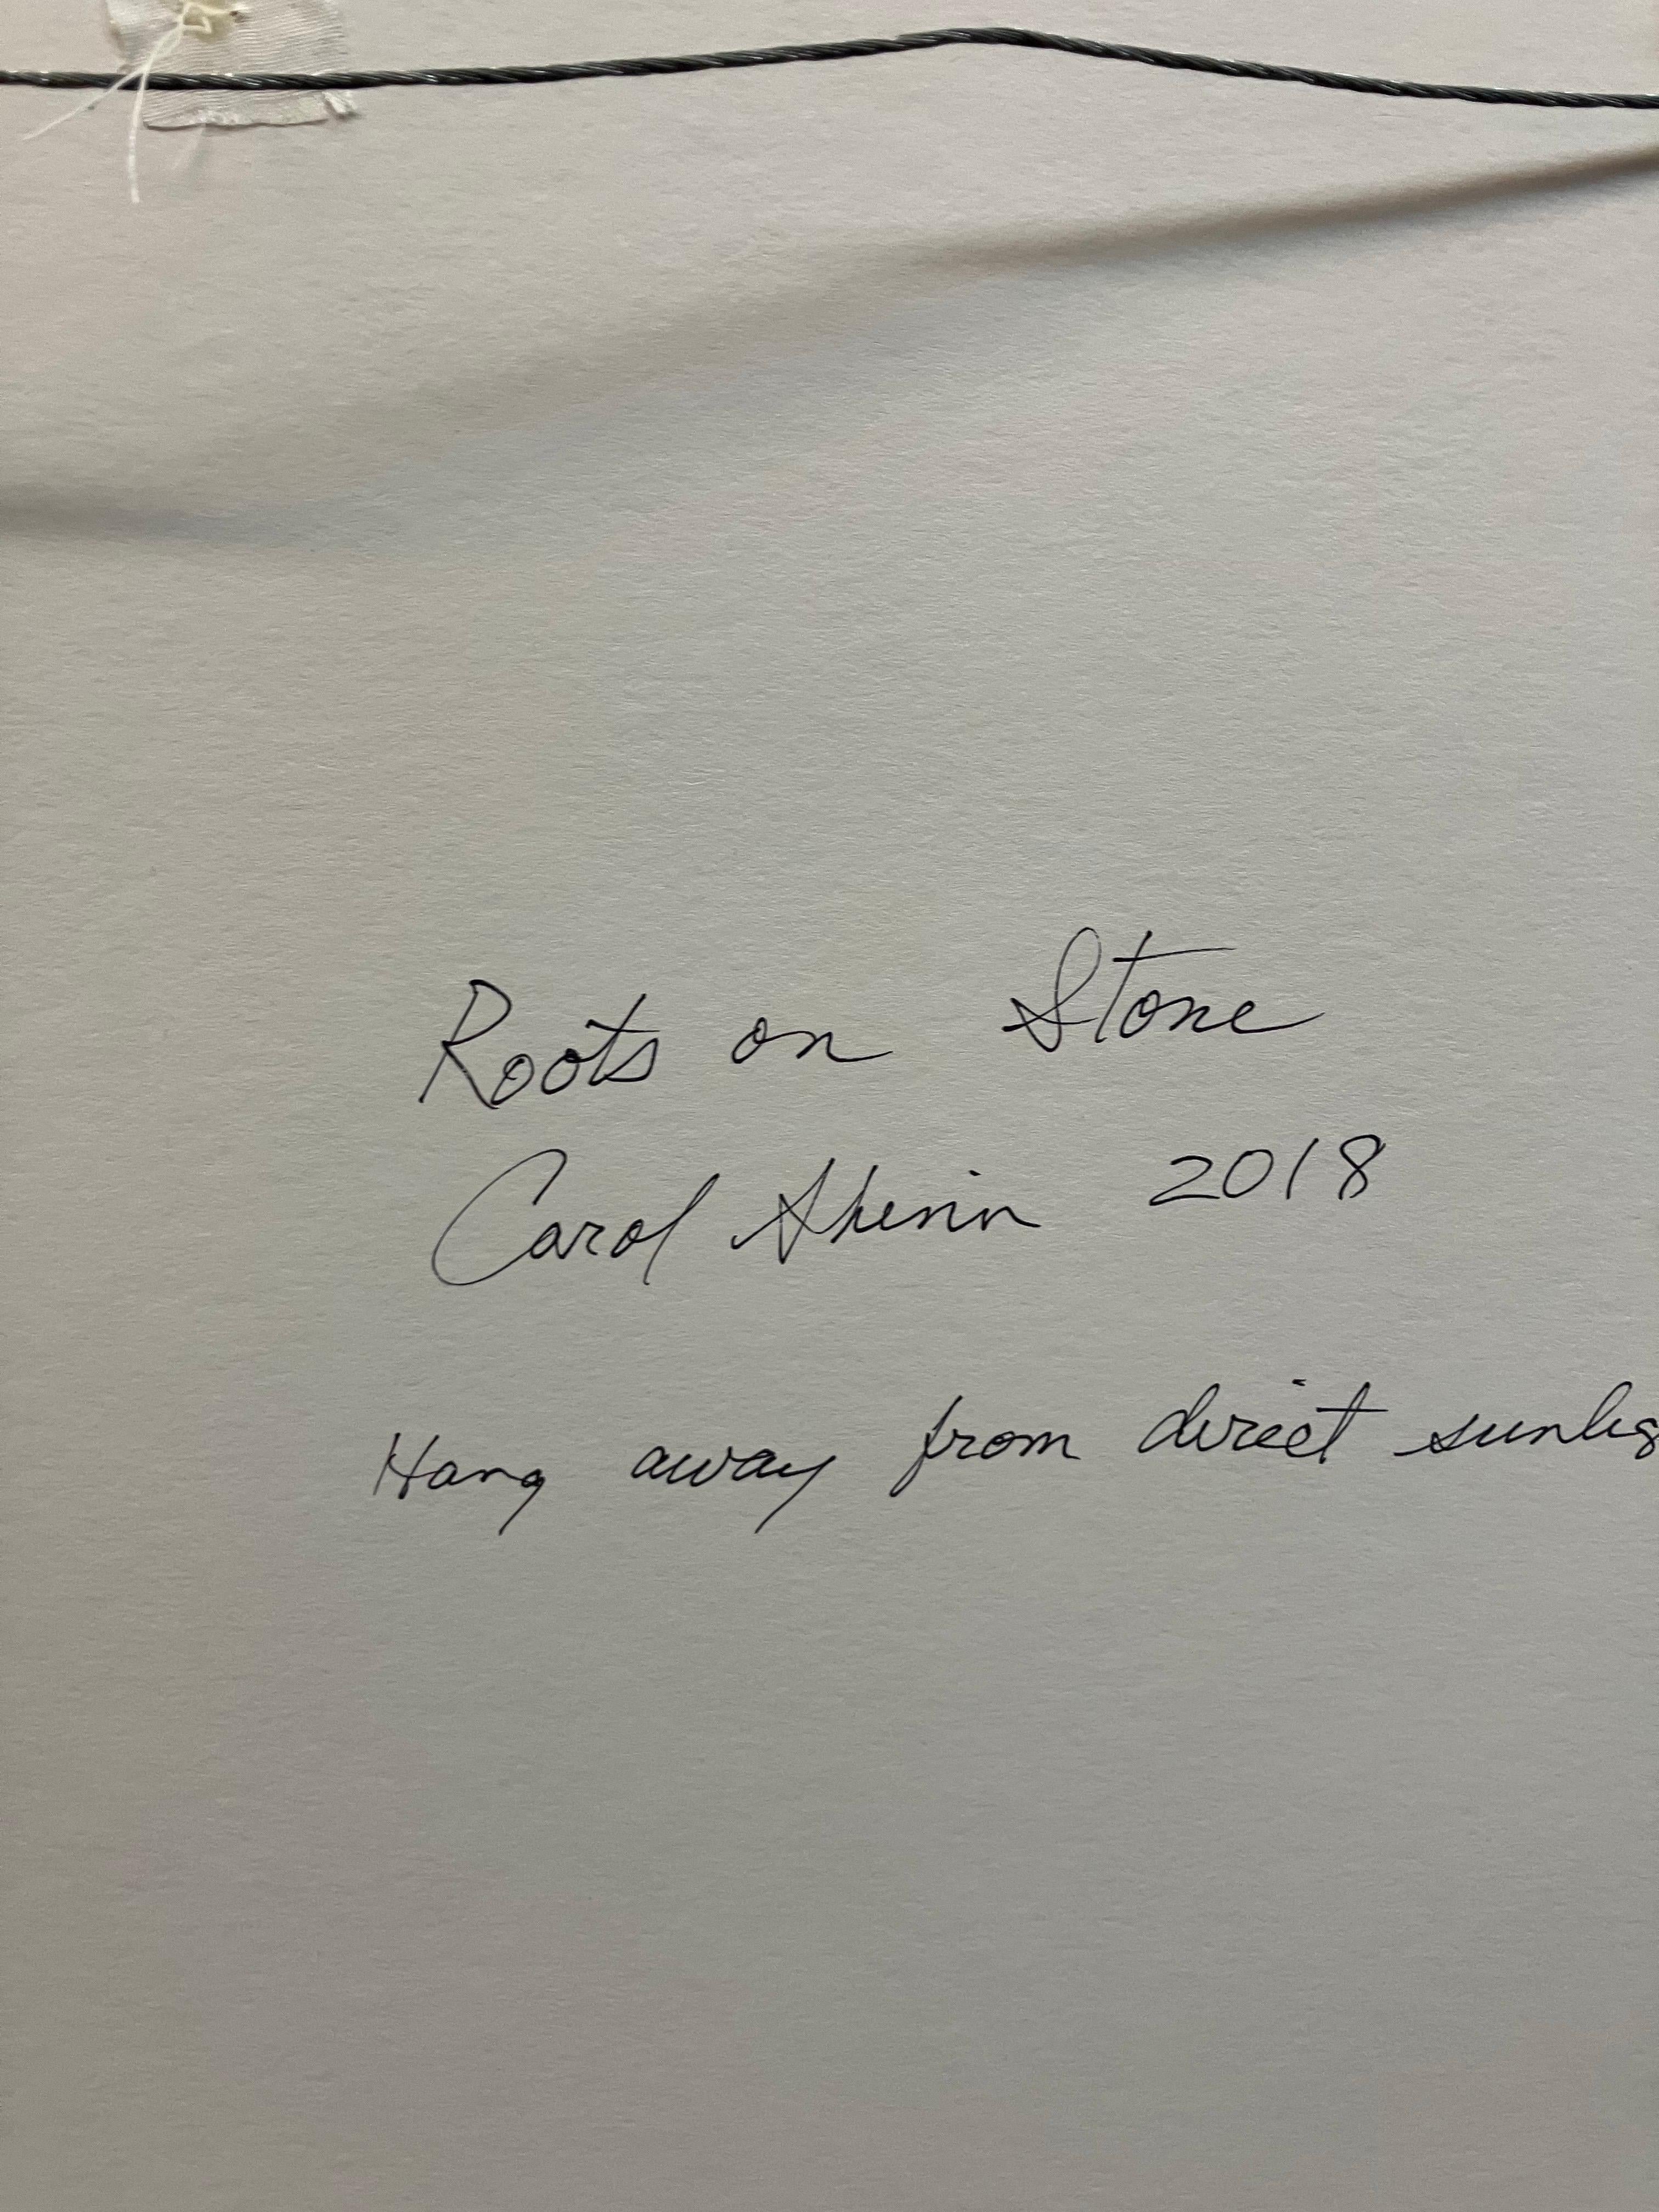 Roots on Stone
Carol Shinn 2018
Hang away from direct sunlig